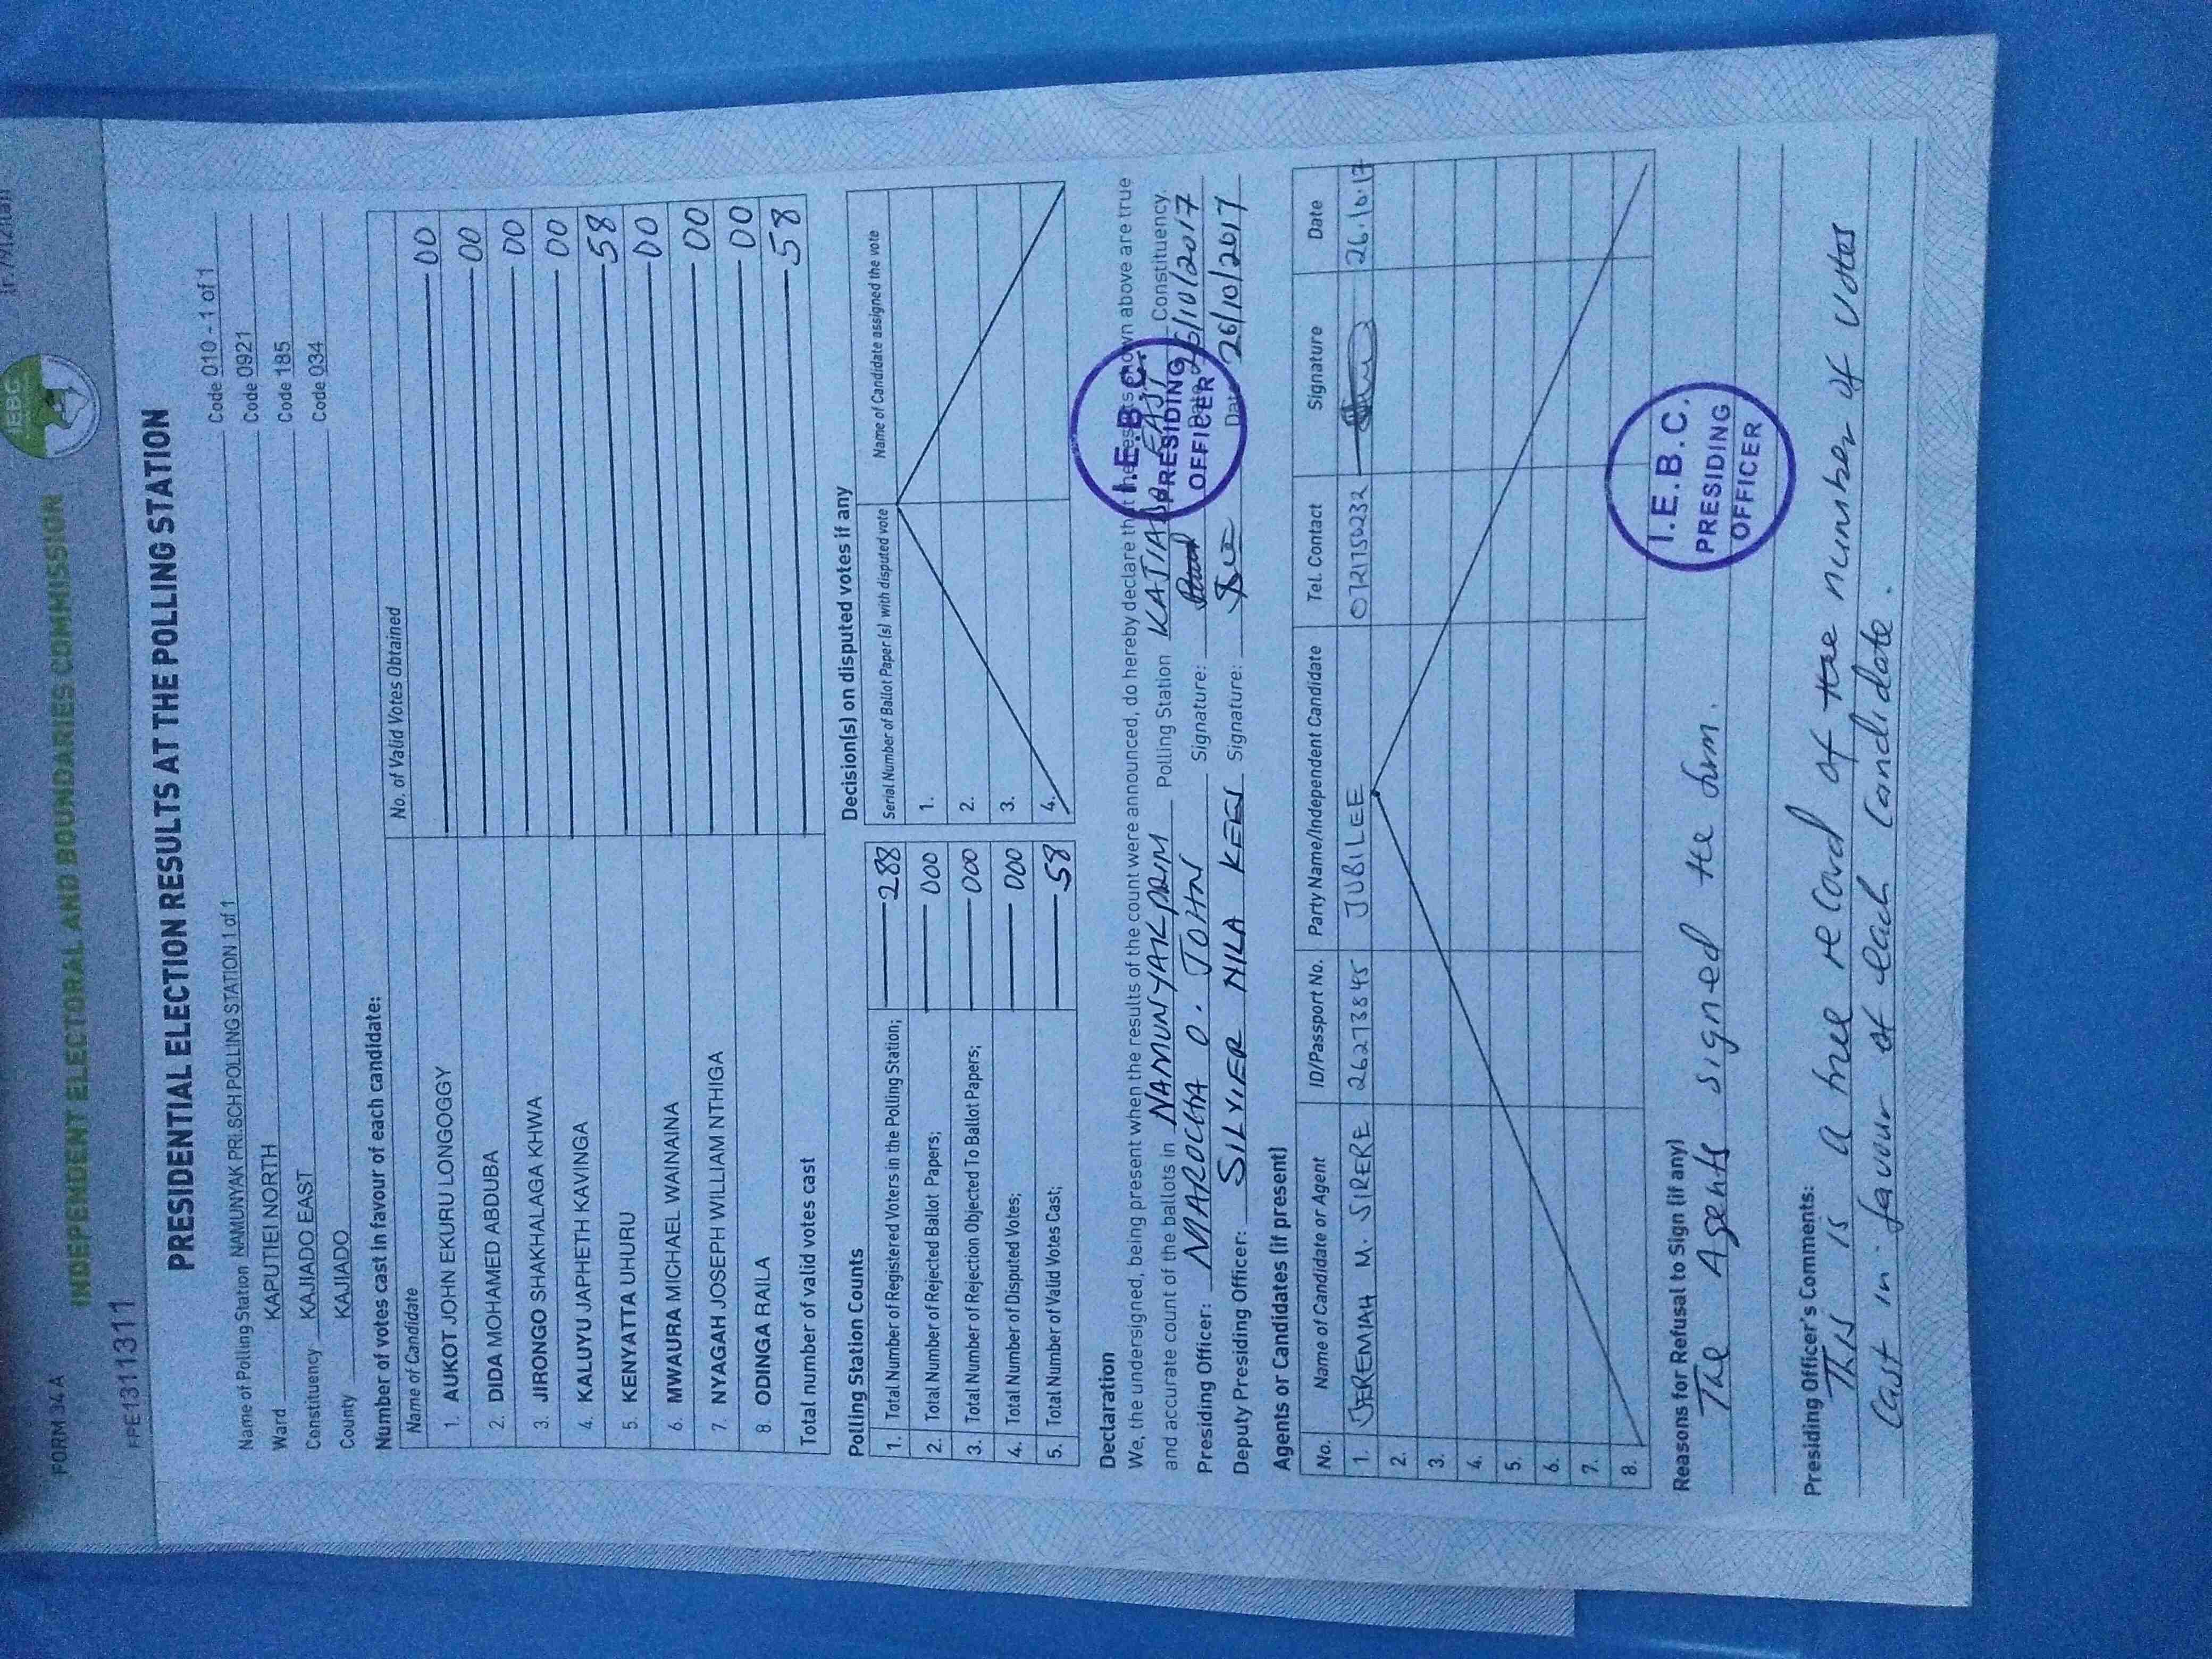 FORM 34 A
INDEPENDENT ELECTORAL AND BOUNDARIES COMMISSION
IEBC
FPE1311311
PRESIDENTIAL ELECTION RESULTS AT THE POLLING STATION
Name of Polling Station NAMUNYAK PRI.SCH POLLING STATION 1 of 1 Code 010 - 1 of 1
Ward KAPUTIEI NORTH Code 0921
Constituency KAJIADO EAST Code 185
County KAJIADO Code 034
Number of votes cast in favour of each candidate:
Name of Candidate No. of Valid Votes Obtained
1. AUKOT JOHN EKURU LONGOGGY 00
2. DIDA MOHAMED ABDUBA 00
3. JIRONGO SHAKHALAGA KHWA 00
4. KALUYU JAPHETH KAVINGA 00
5. KENYATTA UHURU 58
6. MWAURA MICHAEL WAINAINA 00
7. NYAGAH JOSEPH WILLIAM NTHIGA 00
8. ODINGA RAILA 00
Total number of valid votes cast 58
Polling Station Counts
1. Total Number of Registered Voters in the Polling Station; 288
2. Total Number of Rejected Ballot Papers; 000
3. Total Number of Rejection Objected To Ballot Papers; 000
4. Total Number of Disputed Votes; 000
5. Total Number of Valid Votes Cast; 58
Decision(s) on disputed votes if any
Serial Number of Ballot Paper (s) with disputed vote Name of Candidate assigned the vote
1.
2.
3.
4.
Declaration
We, the undersigned, being present when the results of the count were announced, do hereby declare that the results shown above are true
and accurate count of the ballots in NAMUNYAK PRIM Polling Station KAJIADO EAST Constituency.
Presiding Officer: MAROCHA O. JOHN Signature: Date 26/10/2017
Deputy Presiding Officer: SILVIER NILA KEES Signature: Date 26/10/2017
I.E.B.C.
PRESIDING
OFFICER
Agents or Candidates (if present)
No. Name of Candidate or Agent ID/Passport No. Party Name/Independent Candidate Tel. Contact Signature Date
1. JEREMIAH M. SIRERE 26273845 JUBILEE 0721750232 26.10.17
2.
3.
4.
5.
6.
7.
8.
I.E.B.C.
PRESIDING
OFFICER
Reasons for Refusal to Sign (if any)
The Agents signed the form.
Presiding Officer's Comments:
This is a true record of the number of votes
cast in favour of each candidate.